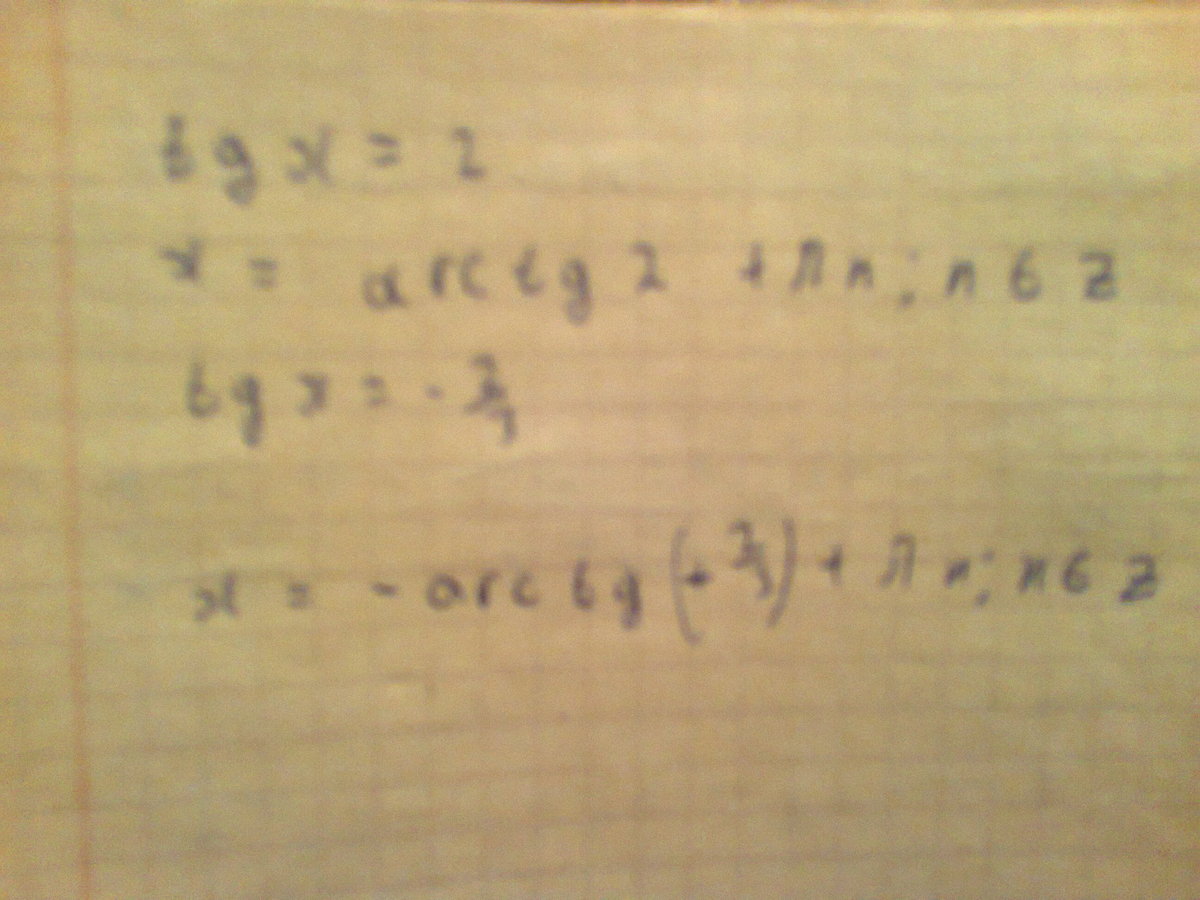 tg x = 2
x = arctg 2 + πn; n ∈ z
tg x = -
x = - arctg ( ) + πn; n ∈ z